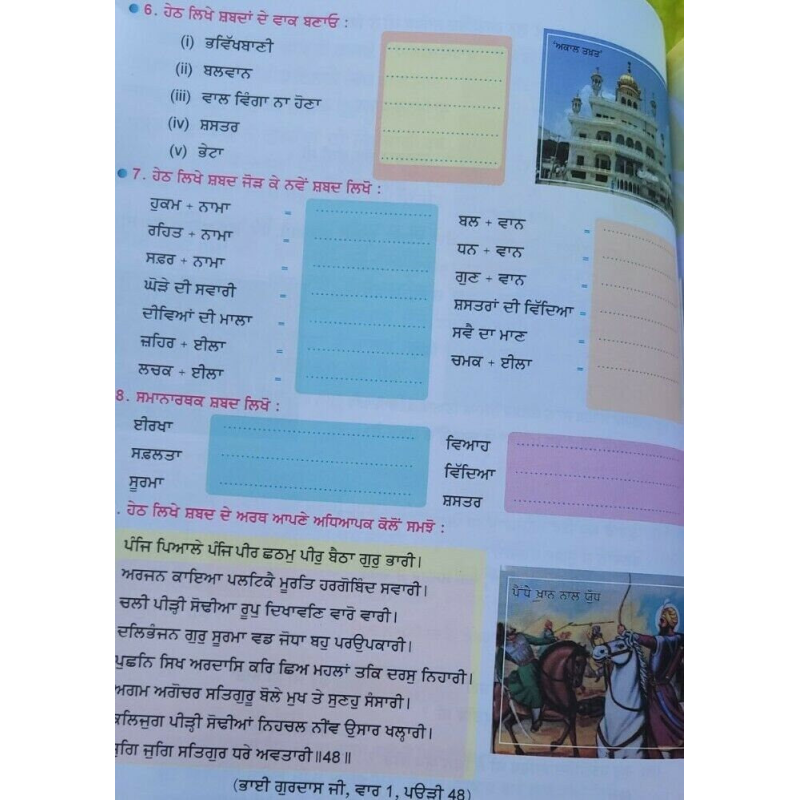 6. ਹੇਠ ਲਿਖੇ ਸ਼ਬਦਾਂ ਦੇ ਵਾਕ ਬਣਾਓ :
(i) ਭਵਿੱਖਬਾਣੀ
(ii) ਬਲਵਾਨ
(iii) ਵਾਲ ਵਿੰਗਾ ਨਾ ਹੋਣਾ
(iv) ਸ਼ਸਤਰ
(v) ਭੇਟਾ
'ਅਕਾਲ ਤਖ਼ਤ'
7. ਹੇਠ ਲਿਖੇ ਸ਼ਬਦ ਜੋੜ ਕੇ ਨਵੇਂ ਸ਼ਬਦ ਲਿਖੋ :
ਹੁਕਮ + ਨਾਮਾ =
ਰਹਿਤ + ਨਾਮਾ =
ਸਫ਼ਰ + ਨਾਮਾ =
ਘੋੜੇ ਦੀ ਸਵਾਰੀ =
ਦੀਵਿਆਂ ਦੀ ਮਾਲਾ =
ਜ਼ਹਿਰ + ਈਲਾ =
ਲਚਕ + ਈਲਾ =
ਬਲ + ਵਾਨ =
ਧਨ + ਵਾਨ =
ਗੁਣ + ਵਾਨ =
ਸ਼ਸਤਰਾਂ ਦੀ ਵਿੱਦਿਆ =
ਸਵੈ ਦਾ ਮਾਣ =
ਚਮਕ + ਈਲਾ =
8. ਸਮਾਨਾਰਥਕ ਸ਼ਬਦ ਲਿਖੋ :
ਈਰਖਾ
ਸਫ਼ਲਤਾ
ਸੂਰਮਾ
ਵਿਆਹ
ਵਿੱਦਿਆ
ਸ਼ਸਤਰ
. ਹੇਠ ਲਿਖੇ ਸ਼ਬਦ ਦੇ ਅਰਥ ਆਪਣੇ ਅਧਿਆਪਕ ਕੋਲੋਂ ਸਮਝੋ :
ਪੰਜਿ ਪਿਆਲੇ ਪੰਜਿ ਪੀਰ ਛਠਮੁ ਪੀਰੁ ਬੈਠਾ ਗੁਰੁ ਭਾਰੀ।
ਅਰਜਨ ਕਾਇਆ ਪਲਟਿਕੈ ਮੂਰਤਿ ਹਰਗੋਬਿੰਦ ਸਵਾਰੀ।
ਚਲੀ ਪੀੜ੍ਹੀ ਸੋਢੀਆ ਰੂਪੁ ਦਿਖਾਵਣਿ ਵਾਰੋ ਵਾਰੀ।
ਦਲਿਭੰਜਨ ਗੁਰੁ ਸੂਰਮਾ ਵਡ ਜੋਧਾ ਬਹੁ ਪਰਉਪਕਾਰੀ।
ਪੁਛਨਿ ਸਿਖ ਅਰਦਾਸਿ ਕਰਿ ਛਿਅ ਮਹਲਾਂ ਤਕਿ ਦਰਸੁ ਨਿਹਾਰੀ।
ਅਗਮ ਅਗੋਚਰ ਸਤਿਗੁਰੂ ਬੋਲੇ ਮੁਖ ਤੇ ਸੁਣਹੁ ਸੰਸਾਰੀ।
ਕਲਿਜੁਗ ਪੀੜ੍ਹੀ ਸੋਢੀਆਂ ਨਿਹਚਲ ਨੀਂਵ ਉਸਾਰ ਖਲ੍ਹਾਰੀ।
ਜੁਗਿ ਜੁਗਿ ਸਤਿਗੁਰ ਧਰੇ ਅਵਤਾਰੀ॥48॥
(ਭਾਈ ਗੁਰਦਾਸ ਜੀ, ਵਾਰ 1, ਪਉੜੀ 48)
ਪੈਂਦੇ ਖ਼ਾਨ ਨਾਲ ਯੁੱਧ